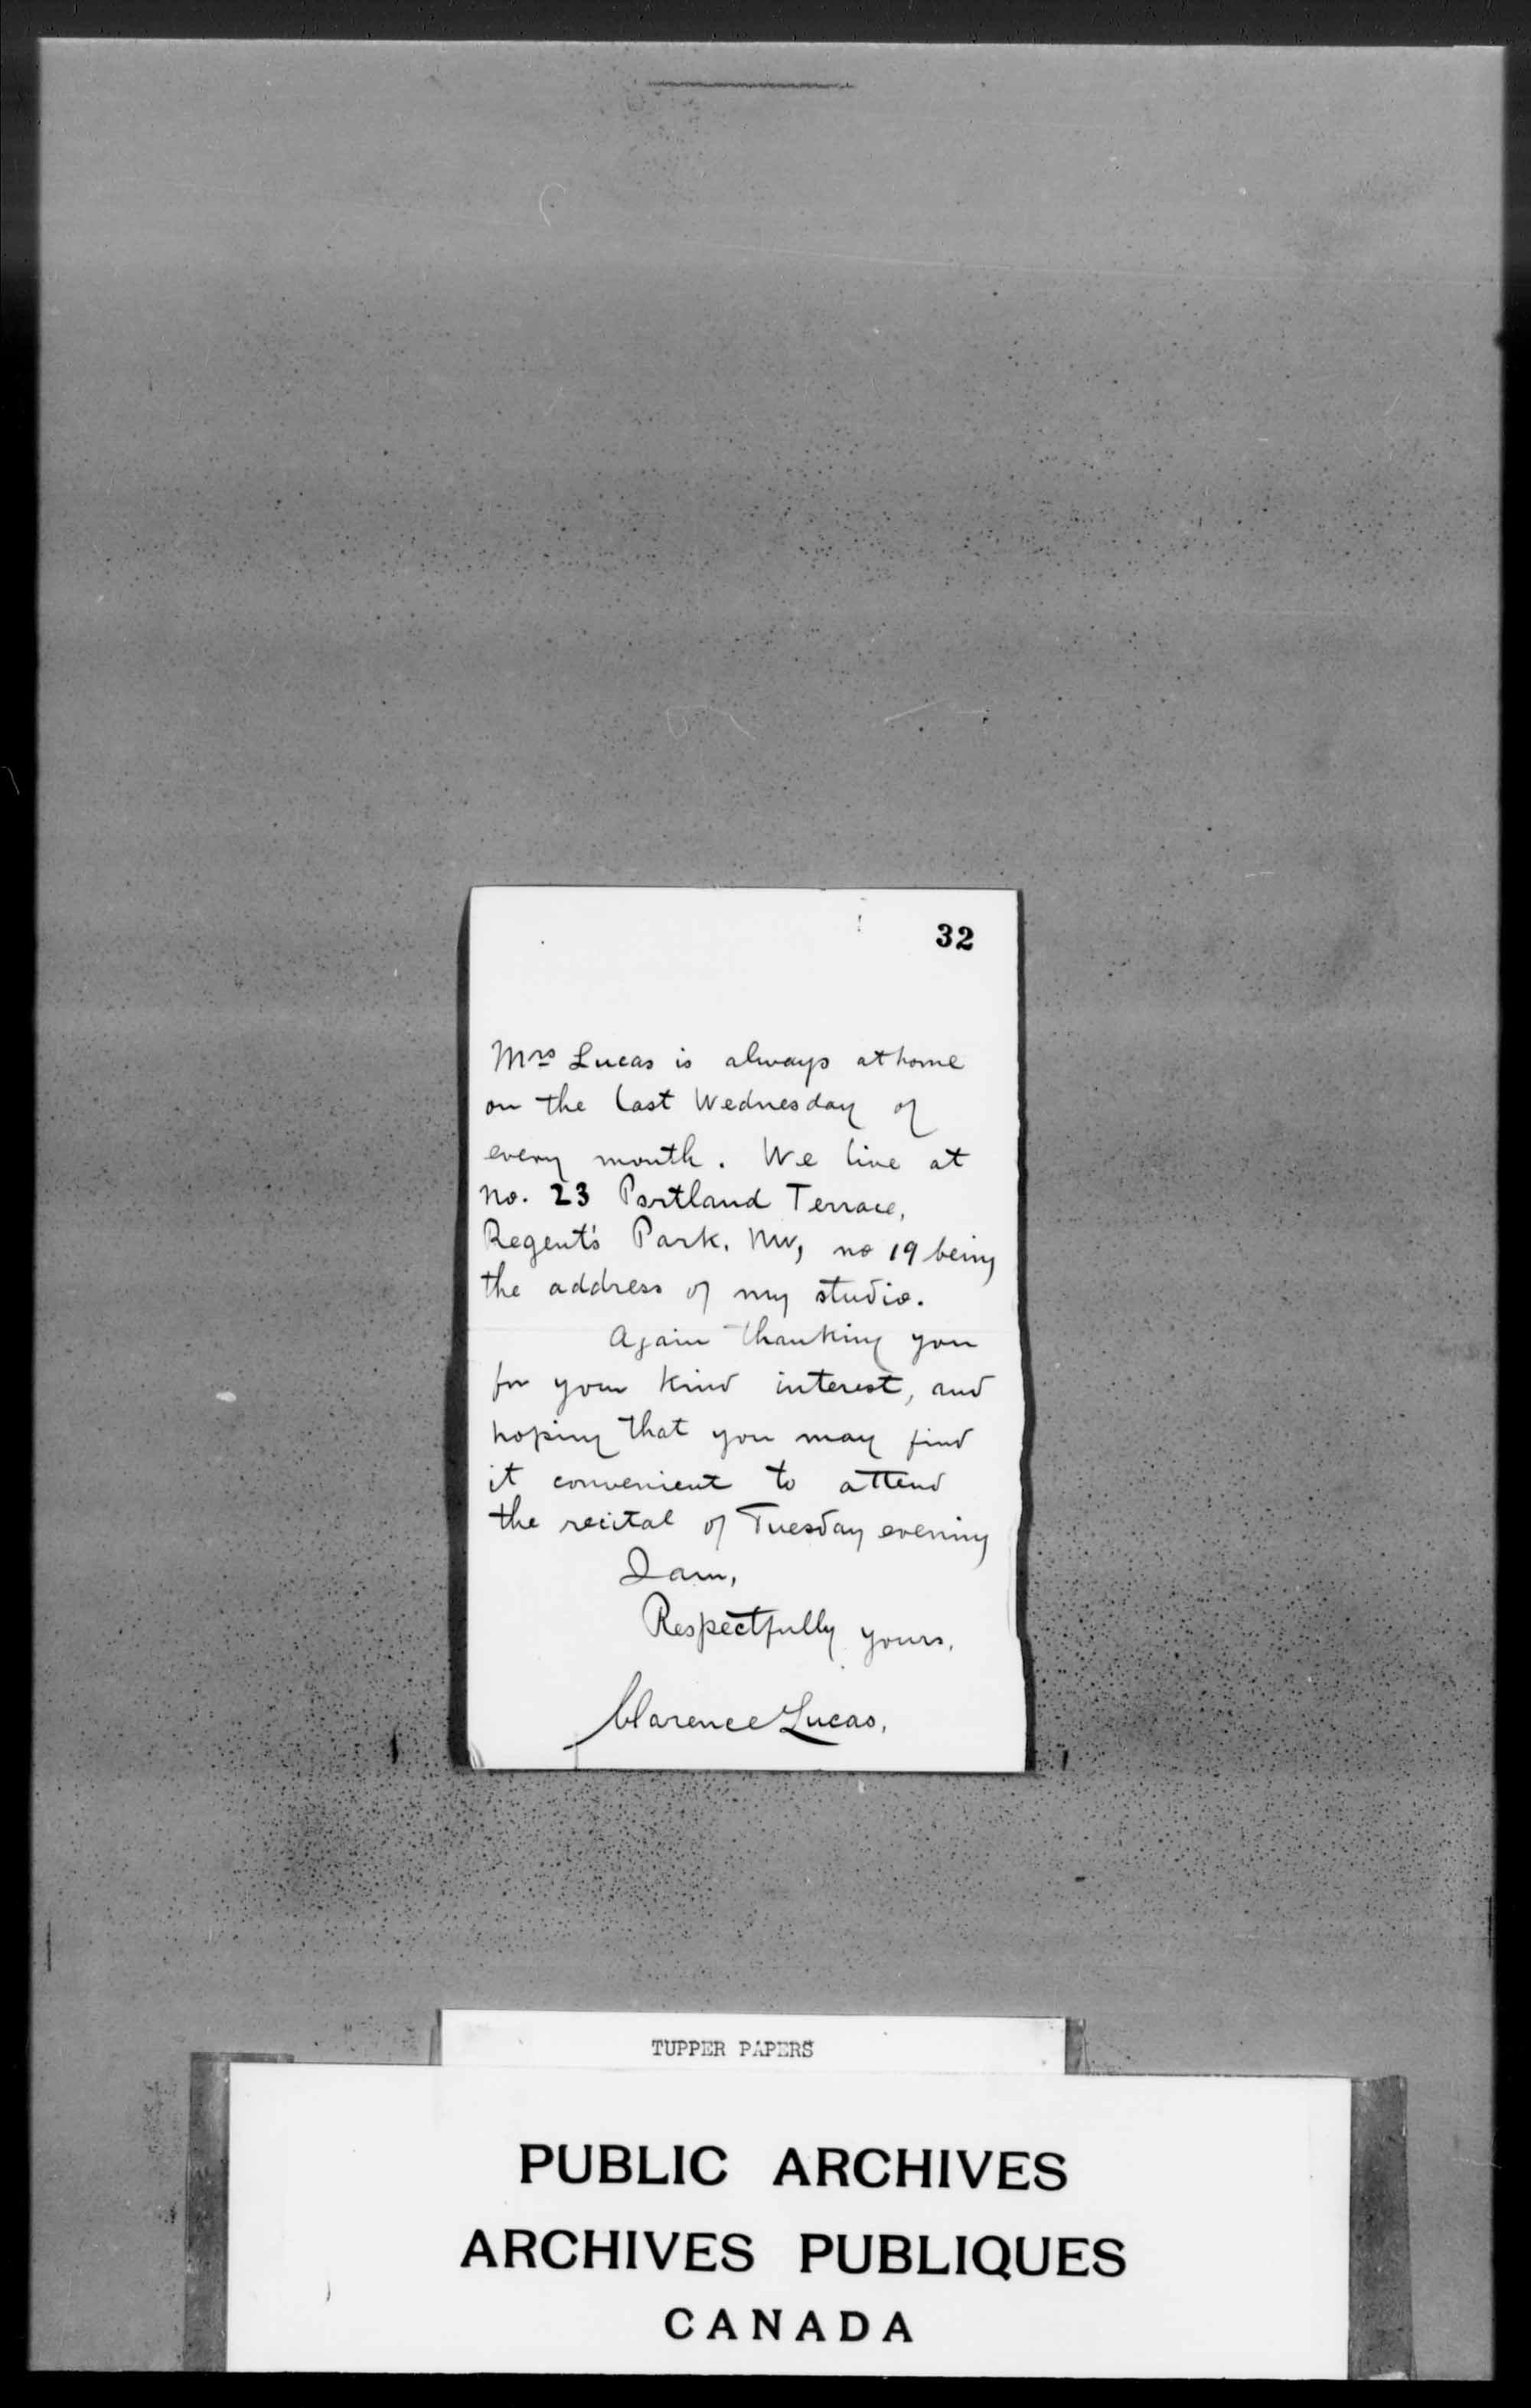 32
Mrs Lucas is always at home
on the last Wednesday of
every month. We live at
no. 23 Portland Terrace,
Regent's Park. NW, no 19 being
the address of my studio.
Again thanking you
for your kind interest, and
hoping that you may find
it convenient to attend
the recital of Tuesday evening
I am,
Respectfully yours,
Clarence Lucas,
TUPPER PAPERS
PUBLIC ARCHIVES
ARCHIVES PUBLIQUES
CANADA